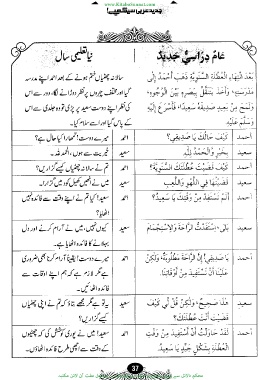 www.KitaboSunnat.com
جدید عربی سیکھیے!
عَامٌ دِرَاسِيٌّ جَدِيدٌ
نیا تعلیمی سال
بَعْدَ انْتِهَاءِ الْعُطْلَةِ السَّنَوِيَّةِ ذَهَبَ أَحْمَدُ إِلَى
مَدْرَسَتِهِ، وَأَخَذَ يَنْتَقِلُ بِبَصَرِهِ بَيْنَ الْوُجُوهِ،
وَلَمَحَ مِنْ بَعِيدٍ صَدِيقَهُ سَعِيدًا، فَأَسْرَعَ إِلَيْهِ
وَسَلَّمَ عَلَيْهِ
سالانہ چھٹیاں ختم ہونے کے بعد احمد اپنے مدرسہ
گیا اور مختلف چہروں پر نظر دوڑانے لگا، دور سے اس
کی نظر اپنے دوست سعید پر پڑی تو وہ جلدی سے اس
کے پاس گیا اور اسے سلام کیا۔
أحمد كَيْفَ حَالُكَ يَا صَدِيقِي؟
احمد میرے دوست! تمھارا کیا حال ہے؟
سعيد بِخَيْرٍ وَالْحَمْدُ لِلَّهِ
سعید خیریت سے ہوں، الحمد للہ۔
أحمد كَيْفَ قَضَيْتَ عُطْلَتَكَ السَّنَوِيَّةَ؟
احمد تم نے سالانہ چھٹیاں کیسے گزاریں؟
سعيد قَضَيْتُهَا فِي اللَّهْوِ وَاللَّعِبِ
سعید میں نے انھیں کھیل کود میں گزارا۔
أحمد أَلَمْ تَسْتَفِدْ مِنْ وَقْتِكَ يَا سَعِيدُ؟
احمد سعید! کیا تم نے اپنے وقت سے فائدہ نہیں
اٹھایا؟
سعيد بَلَى، اسْتَفَدْتُ الرَّاحَةَ وَالِاسْتِجْمَامَ
سعید کیوں نہیں، میں نے آرام کرنے اور دل
بہلانے کا فائدہ اٹھایا ہے۔
أحمد يَا صَدِيقِي! إِنَّ الرَّاحَةَ مَطْلُوبَةٌ، وَلَكِنْ
عَلَيْنَا أَنْ نَسْتَفِيدَ مِنْ أَوْقَاتِنَا
احمد میرے دوست! یقیناً آرام کرنا بھی ضروری
ہے مگر لازم ہے کہ ہم اپنے اوقات سے
فائدہ اٹھائیں۔
سعيد هَذَا صَحِيحٌ، وَلَكِنْ قُلْ لِي كَيْفَ
قَضَيْتَ أَنْتَ عُطْلَتَكَ؟
سعید یہ تو ہے مگر مجھے بتاؤ کہ تم نے اپنی چھٹیاں
کیسے گزاریں؟
أحمد لَقَدْ حَاوَلْتُ أَنْ أَسْتَفِيدَ مِنْ وَقْتِ
الْعُطْلَةِ بِشَكْلٍ جَيِّدٍ يَا سَعِيدُ
احمد سعید! میں نے پوری کوشش کی کہ چھٹیوں
کے وقت سے اچھی طرح فائدہ اٹھاؤں۔
37